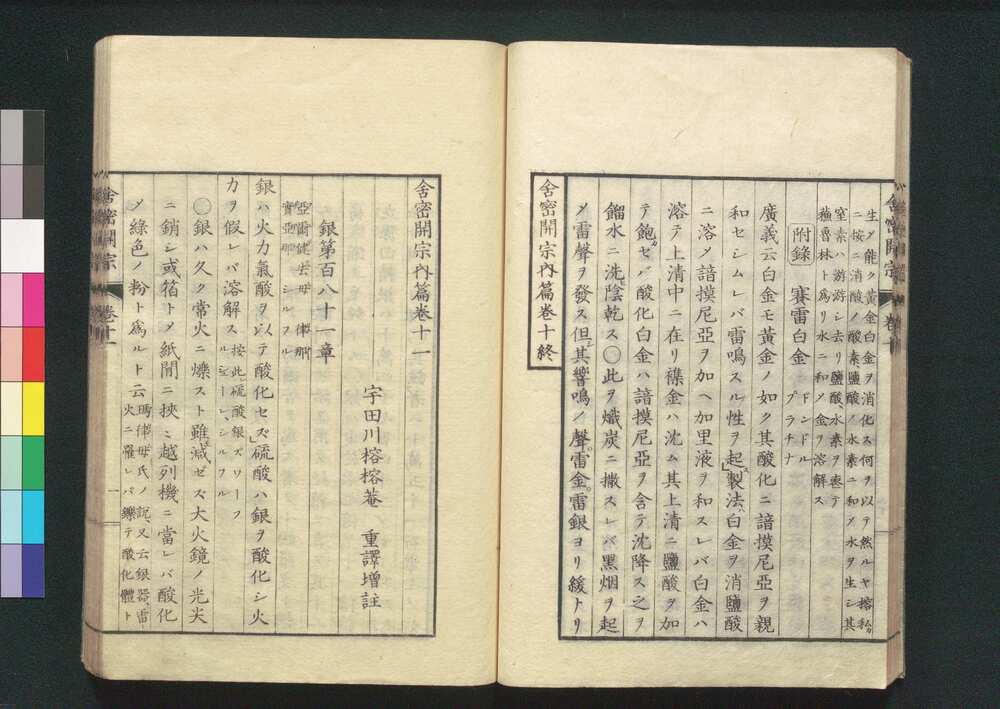 舎密開宗
卷十
生ノ能ク黄金白金ヲ消化ス何ヲ以ヲ然ルヤ榕按
ニ按ニ消酸ノ酸素鹽酸ノ水素ニ和ノ水ヲ生シ其
窒素ハ游游シ去リ鹽酸水素ヲ喪テ
蘊魯林ト爲リ水ニ和ノ金ヲ溶解ス
附錄 賽雷白金 ドンドル
プラチナ
廣義云白金モ黄金ノ如ク其酸化ニ諳摸尼亞ヲ親
和セシムレバ雷鳴スルノ性ヲ起ス製法白金ヲ消鹽酸
ニ溶ノ諳摸尼亞ヲ加ヘ加里液ヲ和スレバ白金ハ
溶テ上清中ニ在リ襍金ハ沈ム其上清ニ鹽酸ヲ加
テ飽カセバ酸化白金ハ諳摸尼亞ヲ含テ沈降ス之ヲ
餾水ニ洗ヒ陰乾ス〇此ヲ熾炭ニ撒スレバ黑烟ヲ起
ノ雷聲ヲ發ス但其響鳴ノ聲雷金雷銀ヨリ緩トリ
舎密開宗內篇卷十終
舎密開宗內篇卷十一
宇田川榕榕菴 重譯增註
銀第百八十一章
亞爾健去母 律那
實亞那 シルフル
銀ハ火力氣酸ヲ以テ酸化セズ硫酸ハ銀ヲ酸化シ火
力ヲ假レバ溶解ス按此硫酸銀ズワーフ
ルシューレ、シルフル
〇銀ハ久ク常火ニ爍ストモ雖減ゼズ大火鏡ノ光尖
ニ銷シ或箔トノ紙閒ニ挾ミ越列機ニ當レバ酸化
ノ綠色ノ粉ト爲ルト云瑪律母氏ノ說又云銀器、雷
火ニ罹レバ爍テ酸化體ト
舎密開宗
卷十一
一